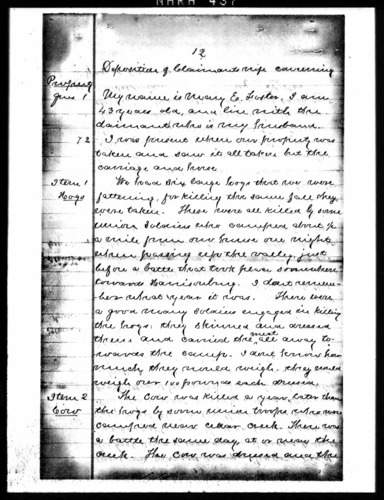 NARA 437
12
Deposition of Claimants wife concerning
Property
Ques 1 My name is Mary E. Foster, I am
43 years old, and live with the
claimant who is my husband.
72 I was present when our property was
taken and saw it all taken but the
carriage and horse
Item 1 We had six large hogs that we were
Hogs fattening, for killing the same fall they
were taken. These were all killed by some
union soldiers who camped about
a mile from our house one night
when passing up the valley, just
before a battle that took place somewhere
towards Harrisonburg. I dont remem-
ber what year it was. There were
a good many soldiers engaged in killing
the hogs; they skinned and dressed
them and carried the meat all away to-
wards the camp. I dont know how
much they would weigh. they would
weigh over 100 pounds each dressed.
Item 2 The Cow was killed a year later than
Cow the hogs by some union troops who were
camped near cedar creek. There was
a battle the same day at or near the
creek. The Cow was dressed and the